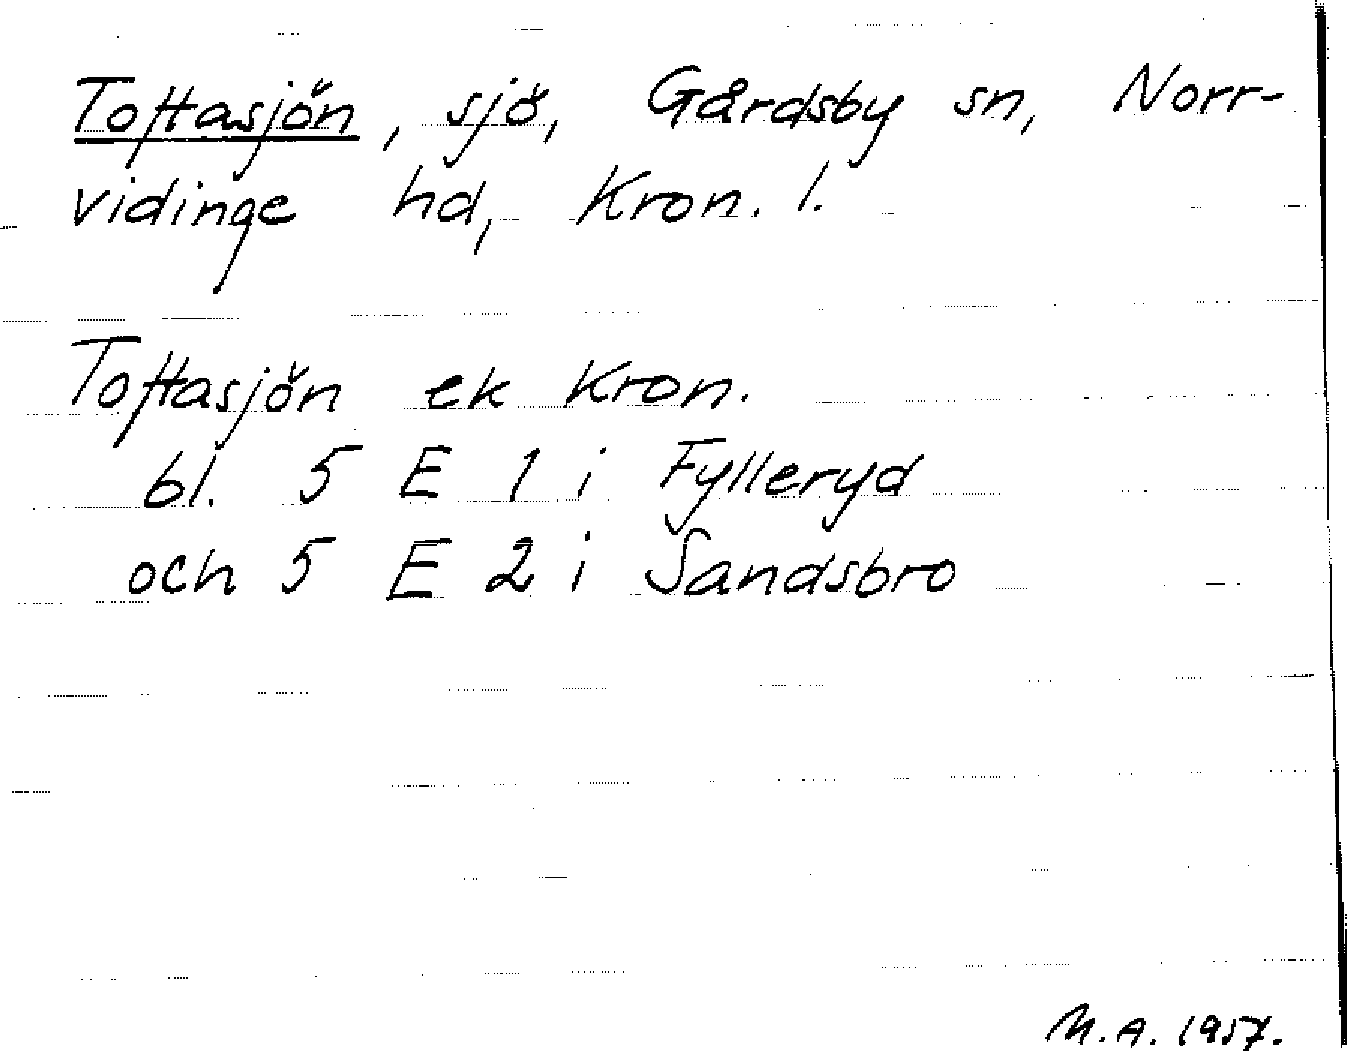 Toftasjön, sjö, Gårdsby sn, Norr-
vidinge hd, Kron. l.
Toftasjön ek Kron.
bl. 5 E 1 i Fylleryd
och 5 E 2 i Sandsbro
M.A. 1957.